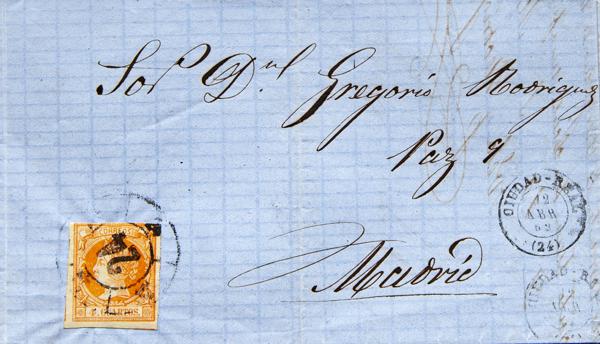 Sor Dn. Gregorio Rodriguez
Paz 9
Madrid
CIUDAD-REAL
12
ABR
62
(24)
CORREOS
24
4 CUARTOS
CIUDAD-RE